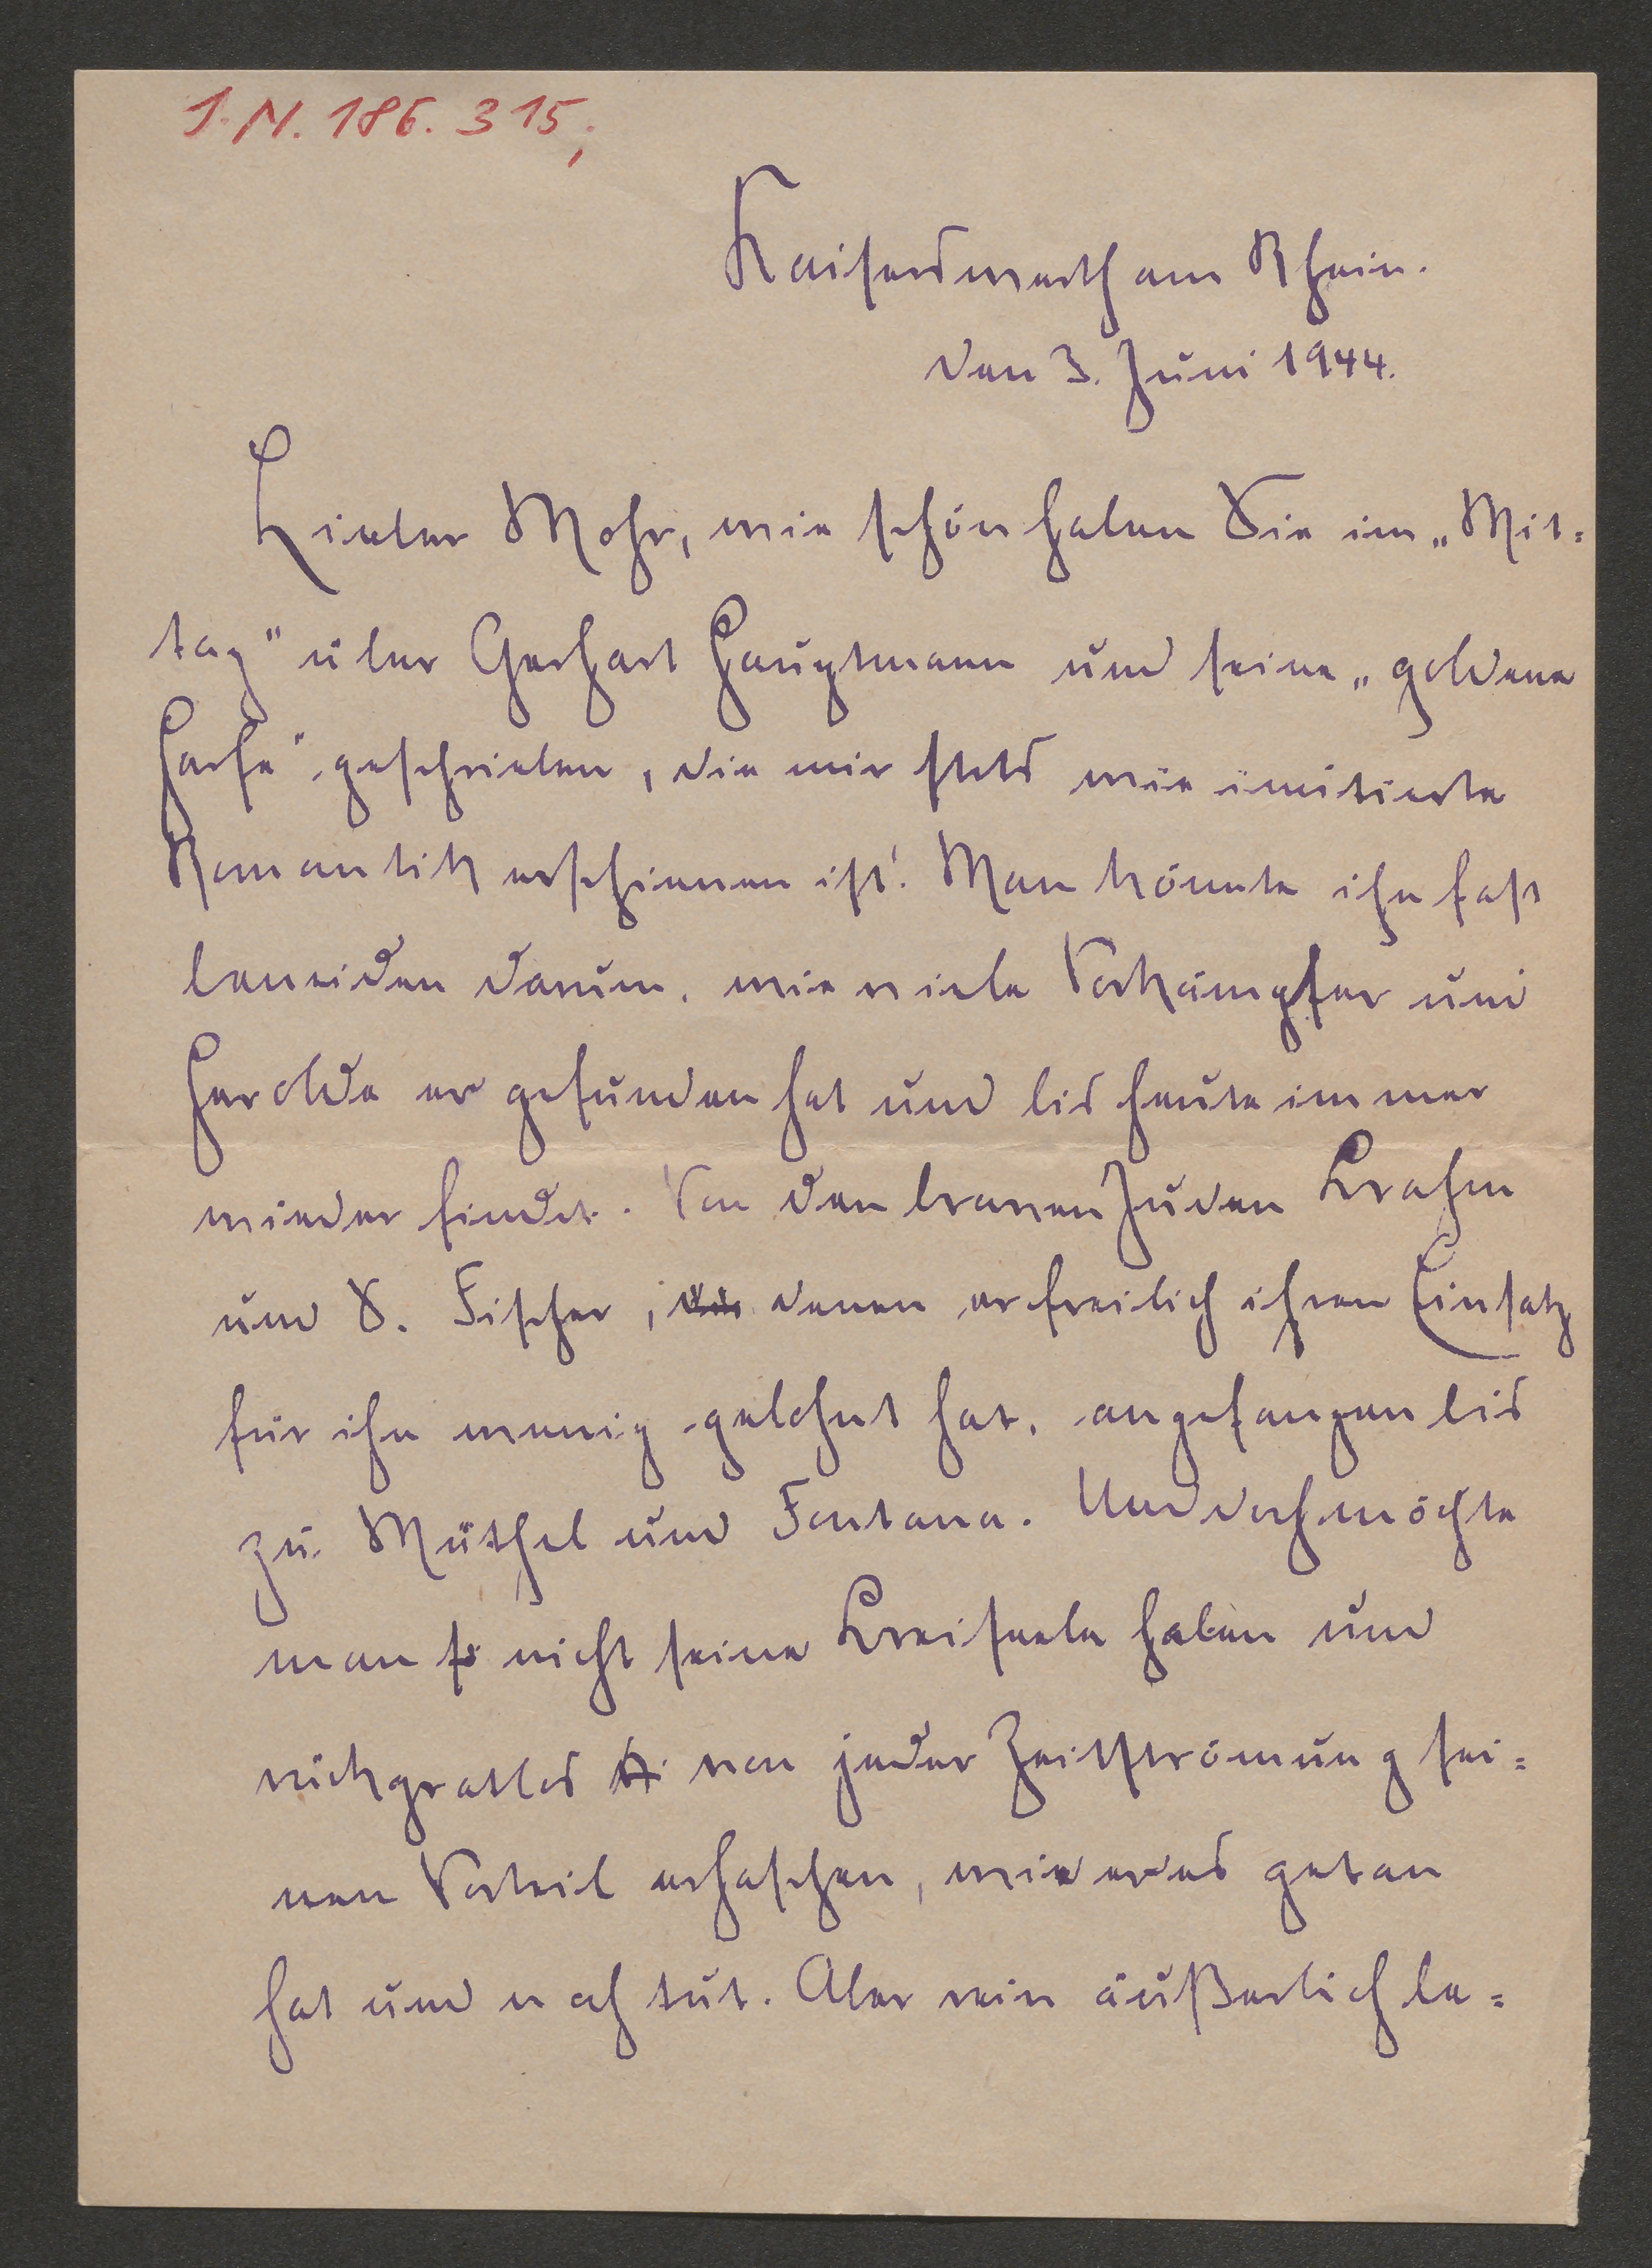 I. N. 186.315,
Kaiserswerth am Rhein.
den 3. Juni 1944.
Lieber Mohr, wie schön haben Sie im „Mit=
tag" über Gerhart Hauptmann und seine „goldene
Harfe" geschrieben, die mir stets wie imitierte
Romantik erschienen ist! Man könnte ihn fast
beneiden darum, wie viele Vorkämpfer und
Herolde er gefunden hat und bis heute immer
wieder findet. Von den braven Juden Brahm
und S. Fischer, denen er freilich ihren Einsatz
für ihn wenig gelohnt hat, angefangen bis
zu Müthel und Fontana. Und doch möchte
man nicht seine Breiseele haben und
rückgratlos von jeder Zeitströmung sei=
nen Vorteil erhaschen, wie er es getan
hat und noch tut. Aber rein äußerlich be=